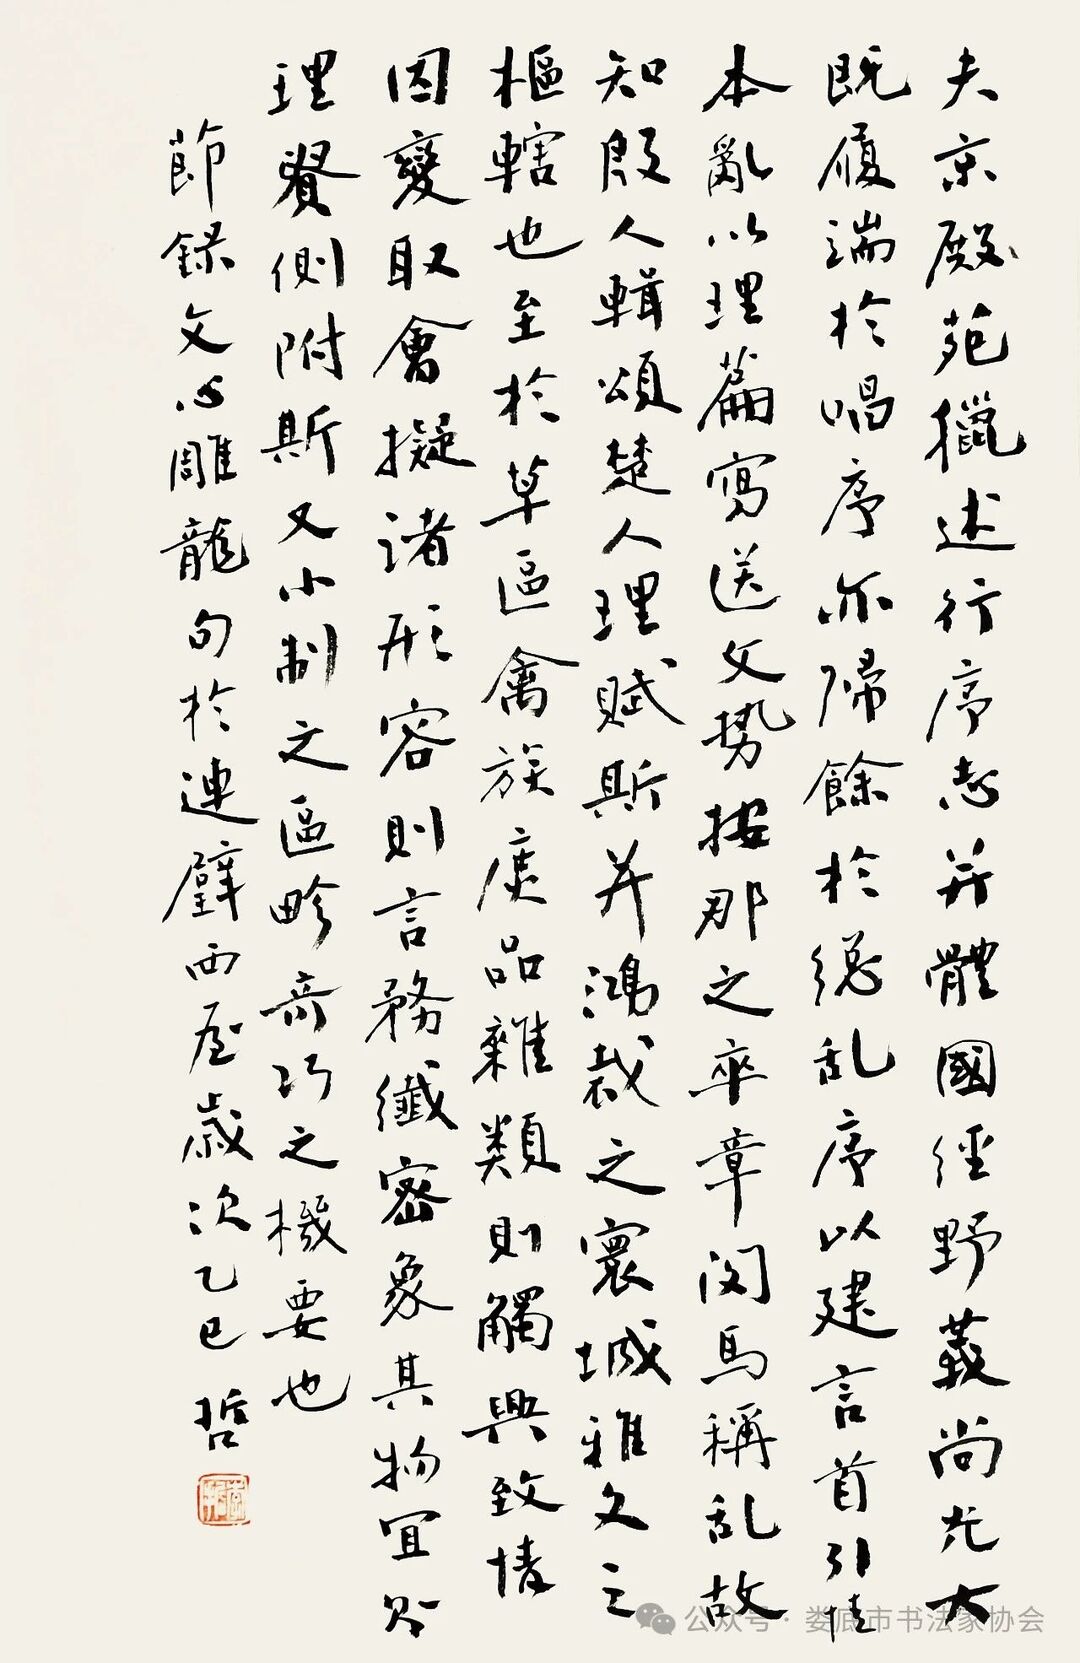 夫京殿苑獵述行序志并體國經野義尚光大
既履端於唱序亦歸餘於總乱序以建言首引情
本亂以理篇寫送文势按那之卒章闵馬稱乱故
知殷人輯頌楚人理賦斯并鴻裁之寰域雅文之
樞轄也至於草區禽族庶品雜類則觸興致情
因變取會擬諸形容則言務纖密象其物宜則
理貴側附斯又小制之區畛奇巧之機要也
節録文心雕龍句於連璧西屋歲次乙巳 哲
公众号·娄底市书法家协会